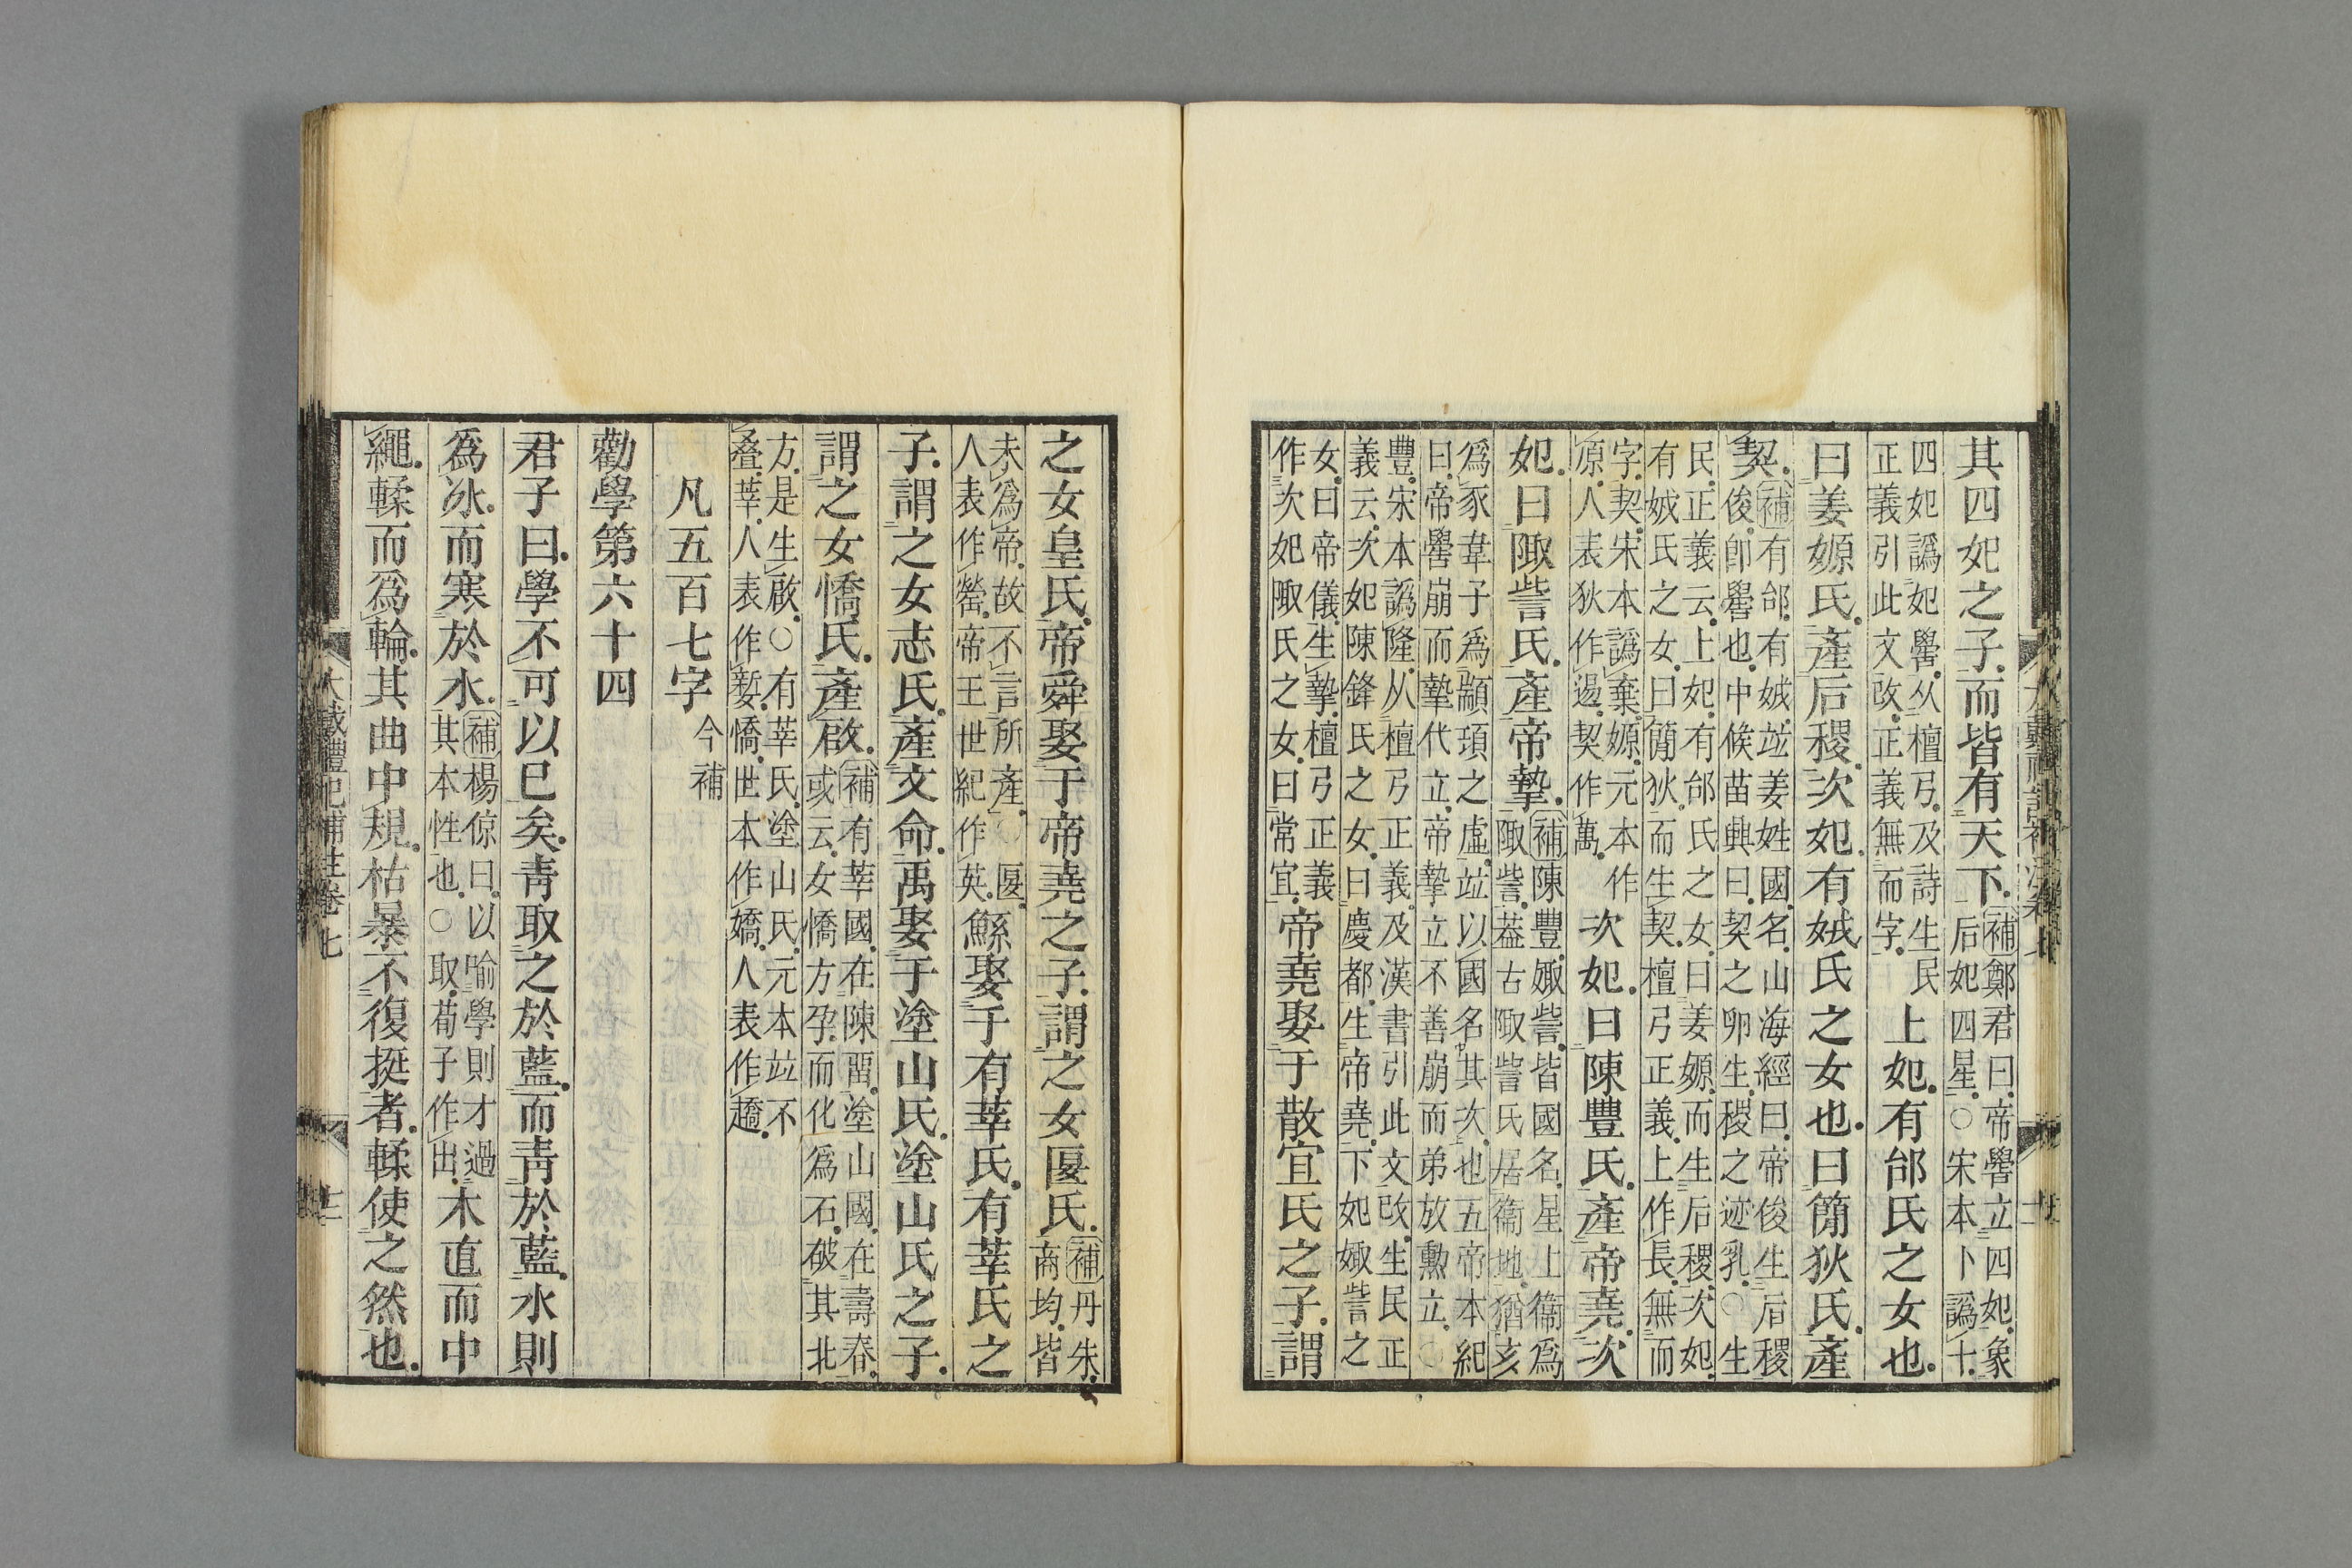 其四妃之子而皆有天下補鄭君曰帝嚳立四妃象
后妃四星○宋本卜譌十
四妃譌妃嚳从檀弓及詩生民
正義引此文改正義無而字上妃有邰氏之女也
曰姜嫄氏產后稷次妃有娀氏之女也曰簡狄氏產
契補有邰有娀竝姜姓國名山海經曰帝俊生后稷
俊卽嚳也中候苗興曰契之卵生稷之迹乳○生
民正義云上妃有邰氏之女曰姜嫄而生后稷次妃
有娀氏之女曰簡狄而生契檀弓正義上作長無而
字契宋本譌棄嫄元本作
原人表狄作逷契作萬次妃曰陳豐氏產帝堯次
妃曰陬訾氏產帝摯補陳豐娵訾皆國名星上衞爲
陬訾葢古陬訾氏居衞地猶亥
爲豕韋子爲顓頊之虛竝以國名其次也五帝本紀
曰帝嚳崩而摯代立帝摯立不善崩而弟放勳立○
豐宋本譌隆从檀弓正義及漢書引此文改生民正
義云次妃陳鋒氏之女曰慶都生帝堯下妃娵訾之
女曰帝儀生摯檀弓正義
作次妃陬氏之女曰常宜帝堯娶于散宜氏之子謂
之女皇氏帝舜娶于帝堯之子謂之女匽氏補丹朱
商均皆
未爲帝故不言所產○匽
人表作罃帝王世紀作英鯀娶于有莘氏有莘氏之
子謂之女志氏產文命禹娶于塗山氏塗山氏之子
謂之女憍氏產啟補有莘國在陳畱塗山國在壽春
或云女憍方孕而化爲石破其北
方是生啟○有莘氏塗山氏元本竝不
叠莘人表作㜪憍世本作嬌人表作趫
凡五百七字今補
勸學第六十四
君子曰學不可以已矣靑取之於藍而靑於藍水則
爲冰而寒於水補楊倞曰以喻學則才過
其本性也○取荀子作出木直而中
繩輮而爲輪其曲中規枯暴不復挺者輮使之然也
大戴禮記補注卷七